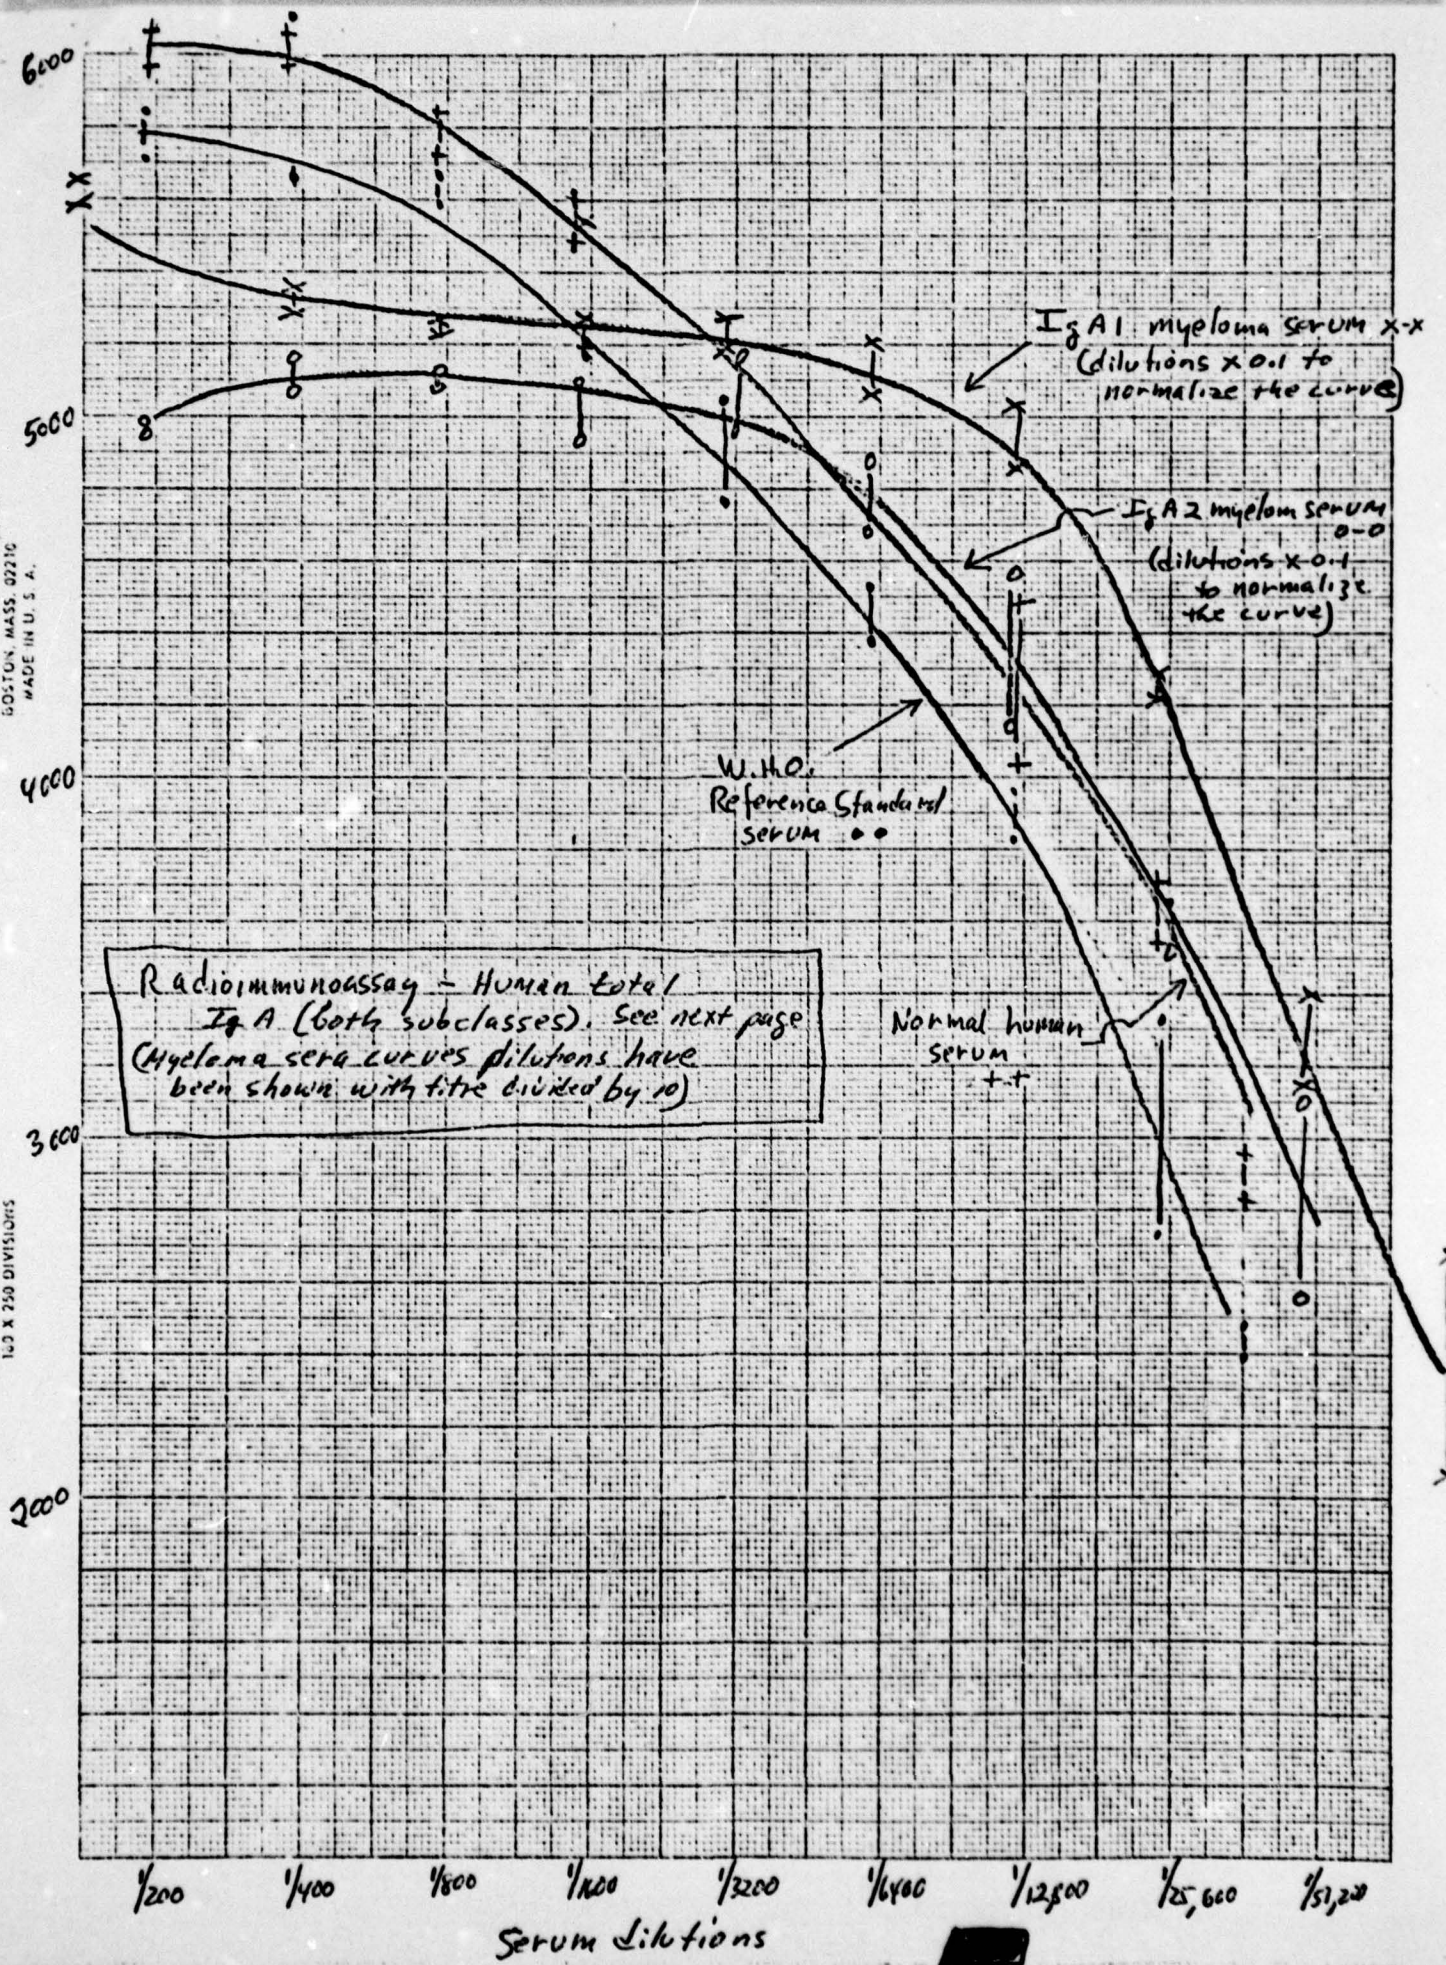 6000
5000
4000
3000
2000
BOSTON, MASS. 02210
MADE IN U. S. A.
100 X 250 DIVISIONS
IgA1 myeloma serum x-x
(dilutions x 0.1 to
normalize the curve)
IgA2 myelom serum
o-o
(dilutions x 0.1
to normalize
the curve)
W.H.O.
Reference Standard
serum • •
Radioimmunoassay - Human total
IgA (both subclasses). See next page
(Myeloma sera curves dilutions have
been shown with titre divided by 10)
Normal human
serum
+ +
1/200 1/400 1/800 1/1600 1/3200 1/6400 1/12,800 1/25,600 1/51,200
Serum dilutions